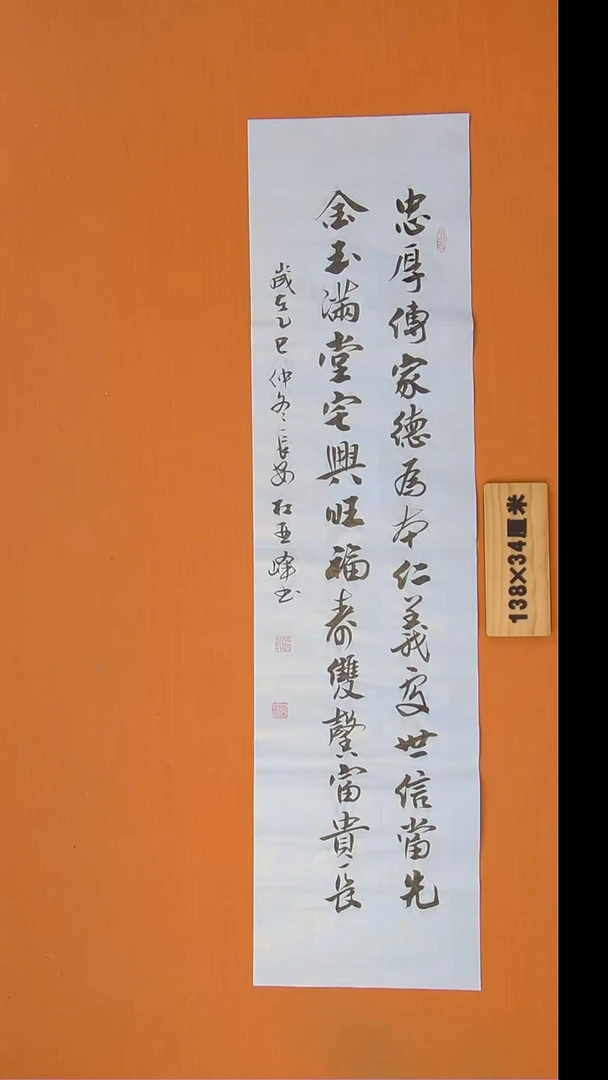 忠厚傳家德為本仁義處世信當先
金玉滿堂宅興旺福壽雙馨富貴長
歲在乙巳仲冬長安杜亞峰書
138×34厘米